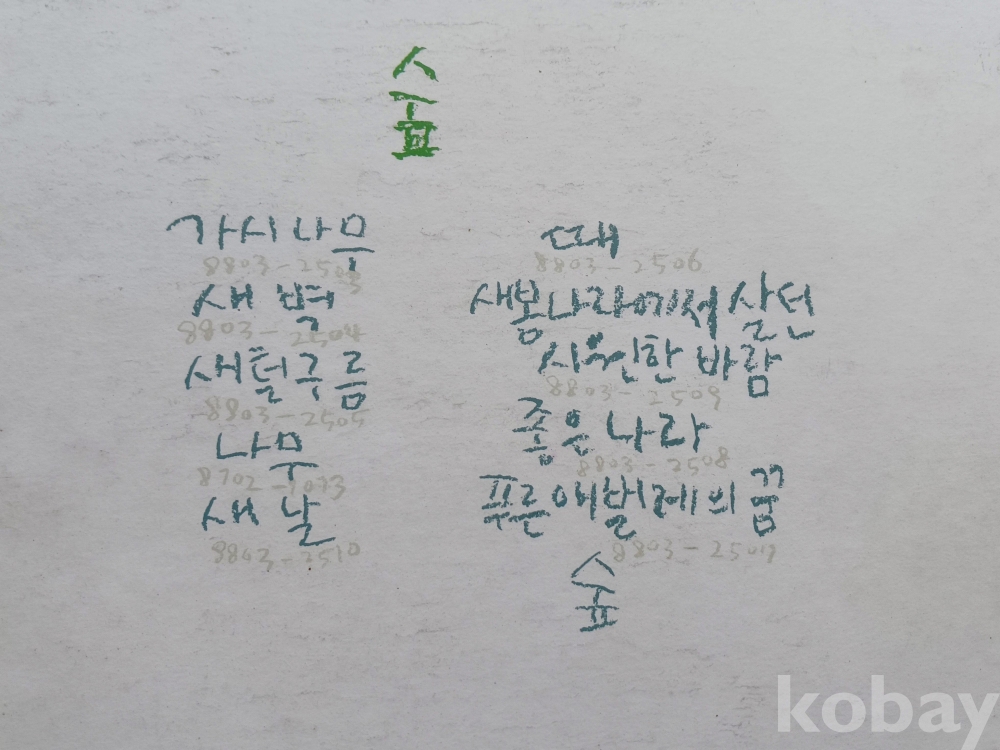 숲
가시나무
8803-2503
새벽
8803-2504
새털구름
8803-2505
나무
새 날
8803-2510
때
8803-2506
새봄나라에서 살던
시원한 바람
8803-2509
좋은 나라
8803-2508
푸른 애벌레의 꿈
8803-2507
숲
kobay